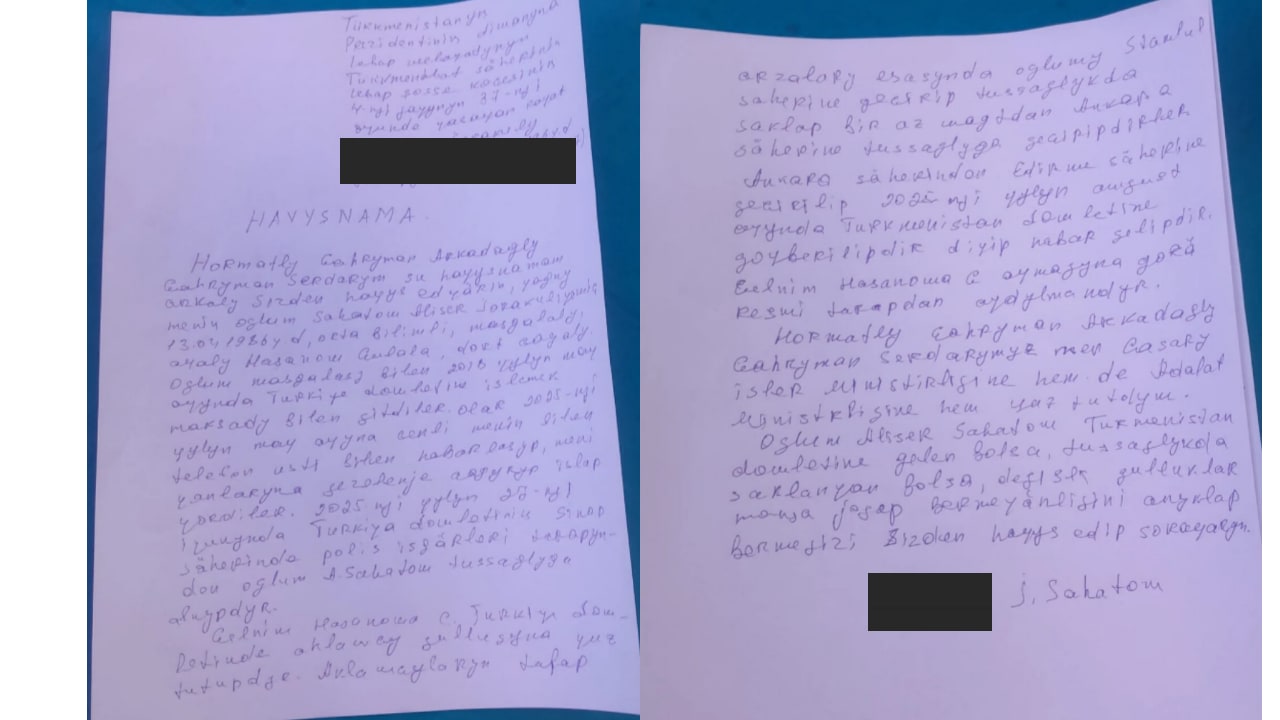 Türkmenistanyň
Prezidentiniň diwanyna
Lebap welaýadynyň
Türkmenabat säheriniň
Lebap sosse köcesiniň
4-nji jaýynyň 37-nji
öýunde ýasaýan raýat
HAVYSNAMA.
Hormatly Gahryman Arkadagly
Gahryman Serdarym su haýysnamam
arkaly Sizden haýys edýärin, ýagny
meniň oglum Sahatow Aliser Jorakulyýewiç
13.04.1986 ý.d, orta bilimli, masgalaly,
aýaly Hasanowa Gulala, dört çagaly.
Oglum masgalasy bilen 2018 ýylyň maý
aýynda Türkiýe döwletine islemek
maksady bilen gitdiler. Olar 2025-nji
ýylyň maý aýyna çenli meniň bilen
telefon usti bilen habarlasyp, meni
ýanlaryna gezelenje çagyryp islap
ýördiler. 2025-nji ýylyň 27-nji
iýunynda Türkiýa döwletiniň Sinap
säherinde polis isgärleri tarapyn-
dan oglum A.Sahatow tussaglyga
alnypdyr.
Gelnim Hasanowa G. Türkiýe döw-
letinde aklawçy gullugyna ýuz
tutupdyr. Aklawaýlaryň talap
arzalary esasynda oglumy Stambul
saherine geçirip tussaglykda
saklap bir az wagtdan Ankara
säherine tussaglyga geçiripdirler
Ankara säherinden Edirne säherine
geçirilip 2025-nji ýylyň awgust
aýynda Türkmenistan döwletine
goýberilipdir diýip habar gelipdir.
Gelnim Hasanowa G aýmagyna görä
resmi tarapdan aýdylmandyr.
Hormatly Gahryman Arkadagly
Gahryman Serdarymyz men Daşary
isler Ministirligine hem-de Adalat
Ministrligine hem ýaz tutdym.
Oglum Aliser Sahatow Türkmenistan
döwletine gelen bolsa, tussaglykda
saklanýan bolsa, degisli gulluklar
maňa jogap bermeýänligini anyklap
bermegizi Sizden haýys edip soraýaryn.
J. Sahatow